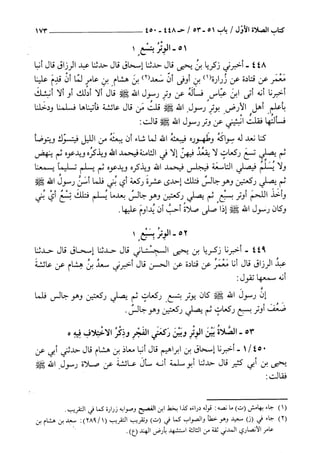 كتاب الصلاة الأول / باب ٥١ - ٥٣ / حـ ٤٤٨ - ٤٥٠ ١٧٣
٥١ - الوتر بتسع
٤٤٨ - أخبرني زكريا بن يحيى قال حدثنا إسحاق قال حدثنا عبد الرزاق قال أنبا
مَعْمَر عن قتادة عن زُرارة(١) بن أوفى أنّ سَعد(٢) بن هشام بن عامرٍ لمّا أن قدِم علينا
أخبرنا أنه أتى ابن عبّاس فسأله عن وتر رسول الله ﷺ قال ألا أدلك أو ألا أنبئك
بأعلم أهل الأرض بوتر رسول الله ﷺ قلتُ مَن قال عائشة فأتيناها فسلمنا ودخلنا
فسألتها فقلتُ انْبئيني عن وتر رسول الله ﷺ قالت:
كنا نعد له سِواكه وطَهوره فيبعثُه الله لما شاء أن يبعثَه من الليل فيتسوّك ويتوضأ
ثم يصلي تسع ركعاتٍ لا يقعُد فيهنّ إلا في الثامنة فيحمد الله ويذكره ويدعوه ثم ينهض
ولا يُسلّم فيصلي التاسعة فيجلس فيحمد الله ويذكره ويدعوه ثم يسلم تسليما يسمعنا
ثم يصلي ركعتين وهو جالسٌ فتلك إحدى عشرة ركعة أي بُني فلما أسَنّ رسول الله ﷺ
وأخذ اللحم أوتر بسبع ثم يصلي ركعتين وهو جالسٌ بعدما يُسلم فتلك تسعٌ أي بُني
وكان رسول الله ﷺ إذا صلى صلاة أحبّ أن يُداوم عليها.
٥٢ - الوتر بتسع
٤٤٩ - أخبرنا زكريا بن يحيى السجستاني قال حدثنا إسحاق قال حدثنا
عبد الرزاق قال أنا مَعْمَر عن قتادة عن الحسن قال أخبرني سعدُ بنُ هِشام عن عائشةَ
أنه سمعها تقول:
إنّ رسول الله ﷺ كان يوتر بتسع ركعاتٍ ثم يصلي ركعتين وهو جالس فلما
ضَعُف أوتر بسبع ركعات ثم يصلي ركعتين وهو جالس.
٥٣ - الصلاة بين الوتر وبين ركعتي الفجر وذِكرُ الاختلاف فيه
٤٥٠/١ - أخبرنا إسحاق بن ابراهيم قال أنبا معاذ بن هشام قال حدثني أبي عن
يحيى بن أبي كثير قال حدثنا أبو سلمة أنه سأل عائشة عن صلاة رسول الله ﷺ
فقالت:
(١) جاء بهامش (ت) ما نصه: قوله درّاءه كذا بخط ابن الفصيح وصوابه زرارة كما في التقريب.
(٢) جاء في (ز) سعيد وهو خطأ والصواب كما في (ت) وتقريب التقريب (٢٨٩/١): سعد بن هشام بن
عامر الأنصاري المدني ثقة من الثالثة استشهد بأرض الهند (ع).